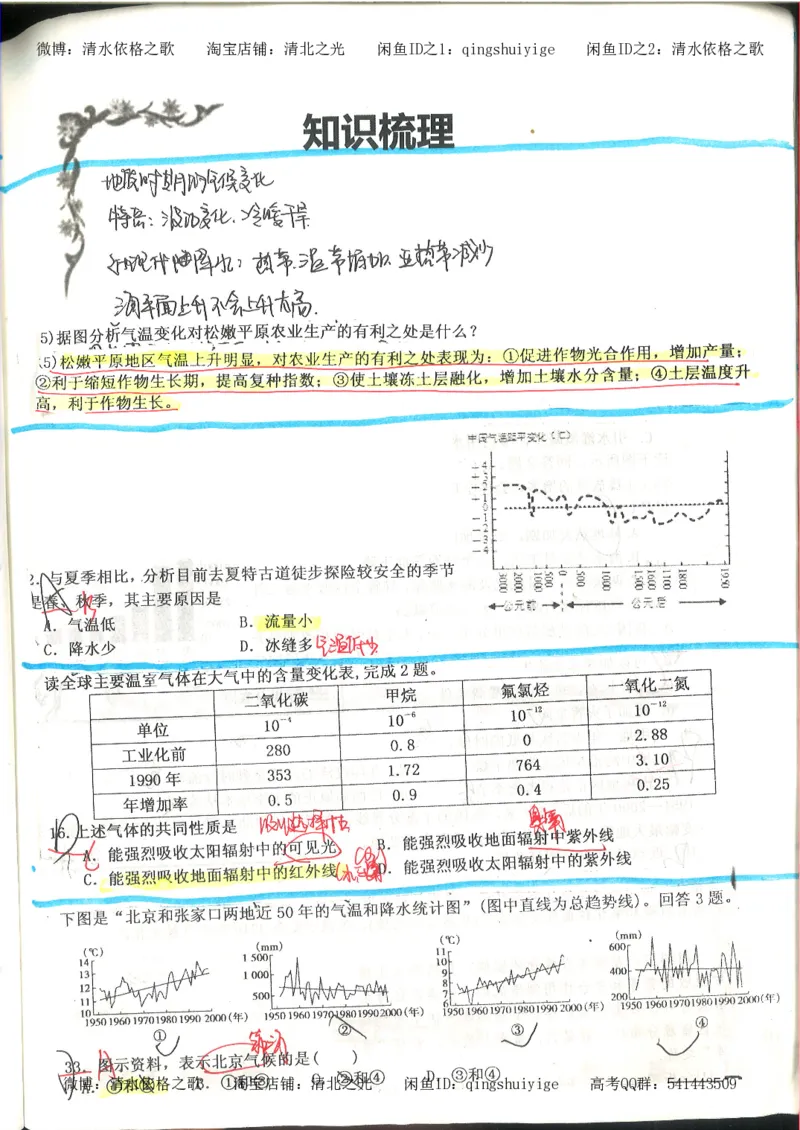 微博：清水依格之歌 淘宝店铺：清北之光 闲鱼ID之1：qingshuiyige 闲鱼ID之2：清水依格之歌
知识梳理
地质时期的气候变化
特点：波动变化、冷暖干湿
热带.温带增加.亚热带减少
海平面上升不会上升太高.
5)据图分析气温变化对松嫩平原农业生产的有利之处是什么？
(5)松嫩平原地区气温上升明显，对农业生产的有利之处表现为：①促进作物光合作用，增加产量；
②利于缩短作物生长期，提高复种指数；③使土壤冻土层融化，增加土壤水分含量；④土层温度升
高，利于作物生长。
中国气温距平变化（℃）
4
3
2
1
0
-1
-2
-3
-4
3000 2000 1000 500 0 500 1000 1500 1600 1700 1800 1950
公元前 公元后
2. 与夏季相比，分析目前去夏特古道徒步探险较安全的季节
是春、秋季，其主要原因是
A. 气温低 B. 流量小
C. 降水少 D. 冰缝多
读全球主要温室气体在大气中的含量变化表，完成2题。
二氧化碳 甲烷 氟氯烃 一氧化二氮
单位 10⁻⁴ 10⁻⁶ 10⁻¹² 10⁻¹²
工业化前 280 0.8 0 2.88
1990年 353 1.72 764 3.10
年增加率 0.5 0.9 0.4 0.25
16. 上述气体的共同性质是 吸收选择性 臭氧
A. 能强烈吸收太阳辐射中的可见光 B. 能强烈吸收地面辐射中紫外线
C. 能强烈吸收地面辐射中的红外线 D. 能强烈吸收太阳辐射中的紫外线
下图是“北京和张家口两地近50年的气温和降水统计图”（图中直线为总趋势线）。回答3题。
(℃) (mm) (℃) (mm)
14 13 12 11 10
1 500 1 000 500
11 10 9 8 7 6
600 400 200
1950 1960 1970 1980 1990 2000(年) 1950 1960 1970 1980 1990 2000(年) 1950 1960 1970 1980 1990 2000(年) 1950 1960 1970 1980 1990 2000(年)
① ② ③ ④
33. 图示资料，表示北京气候的是( )
A. ①和② B. ①和③ C. ②和④ D. ③和④
微博：清水依格之歌 淘宝店铺：清北之光 闲鱼ID：qingshuiyige 高考QQ群：541443509